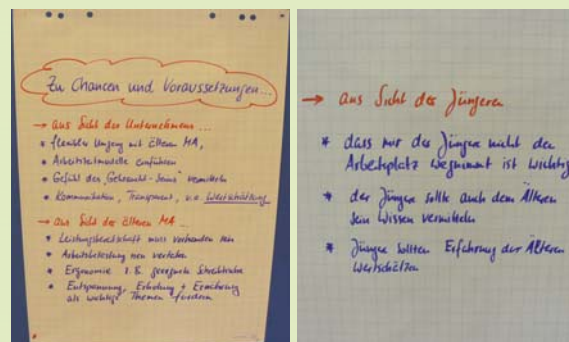 Zu Chancen und Voraussetzungen...
→ aus Sicht des Unternehmens...
* flexibler Umgang mit älteren MA,
* Arbeitszeitmodelle einführen
* Gefühl des "Gebraucht-Seins" vermitteln
* Kommunikation, Transparenz, v.a. Wertschätzung
→ aus Sicht der älteren MA...
* Leistungsbereitschaft muss vorhanden sein
* Arbeitsbelastung neu verteilen
* Ergonomie z.B. geeignete Schreibtische
* Entspannung, Erholung + Ernährung
als wichtige Themen fördern
→ aus Sicht der Jüngeren
* dass mir der Jüngere nicht den
Arbeitsplatz wegnimmt ist wichtig
* der Jüngere sollte auch dem Älteren
sein Wissen vermitteln
* Jüngere sollten Erfahrung der Älteren
wertschätzen